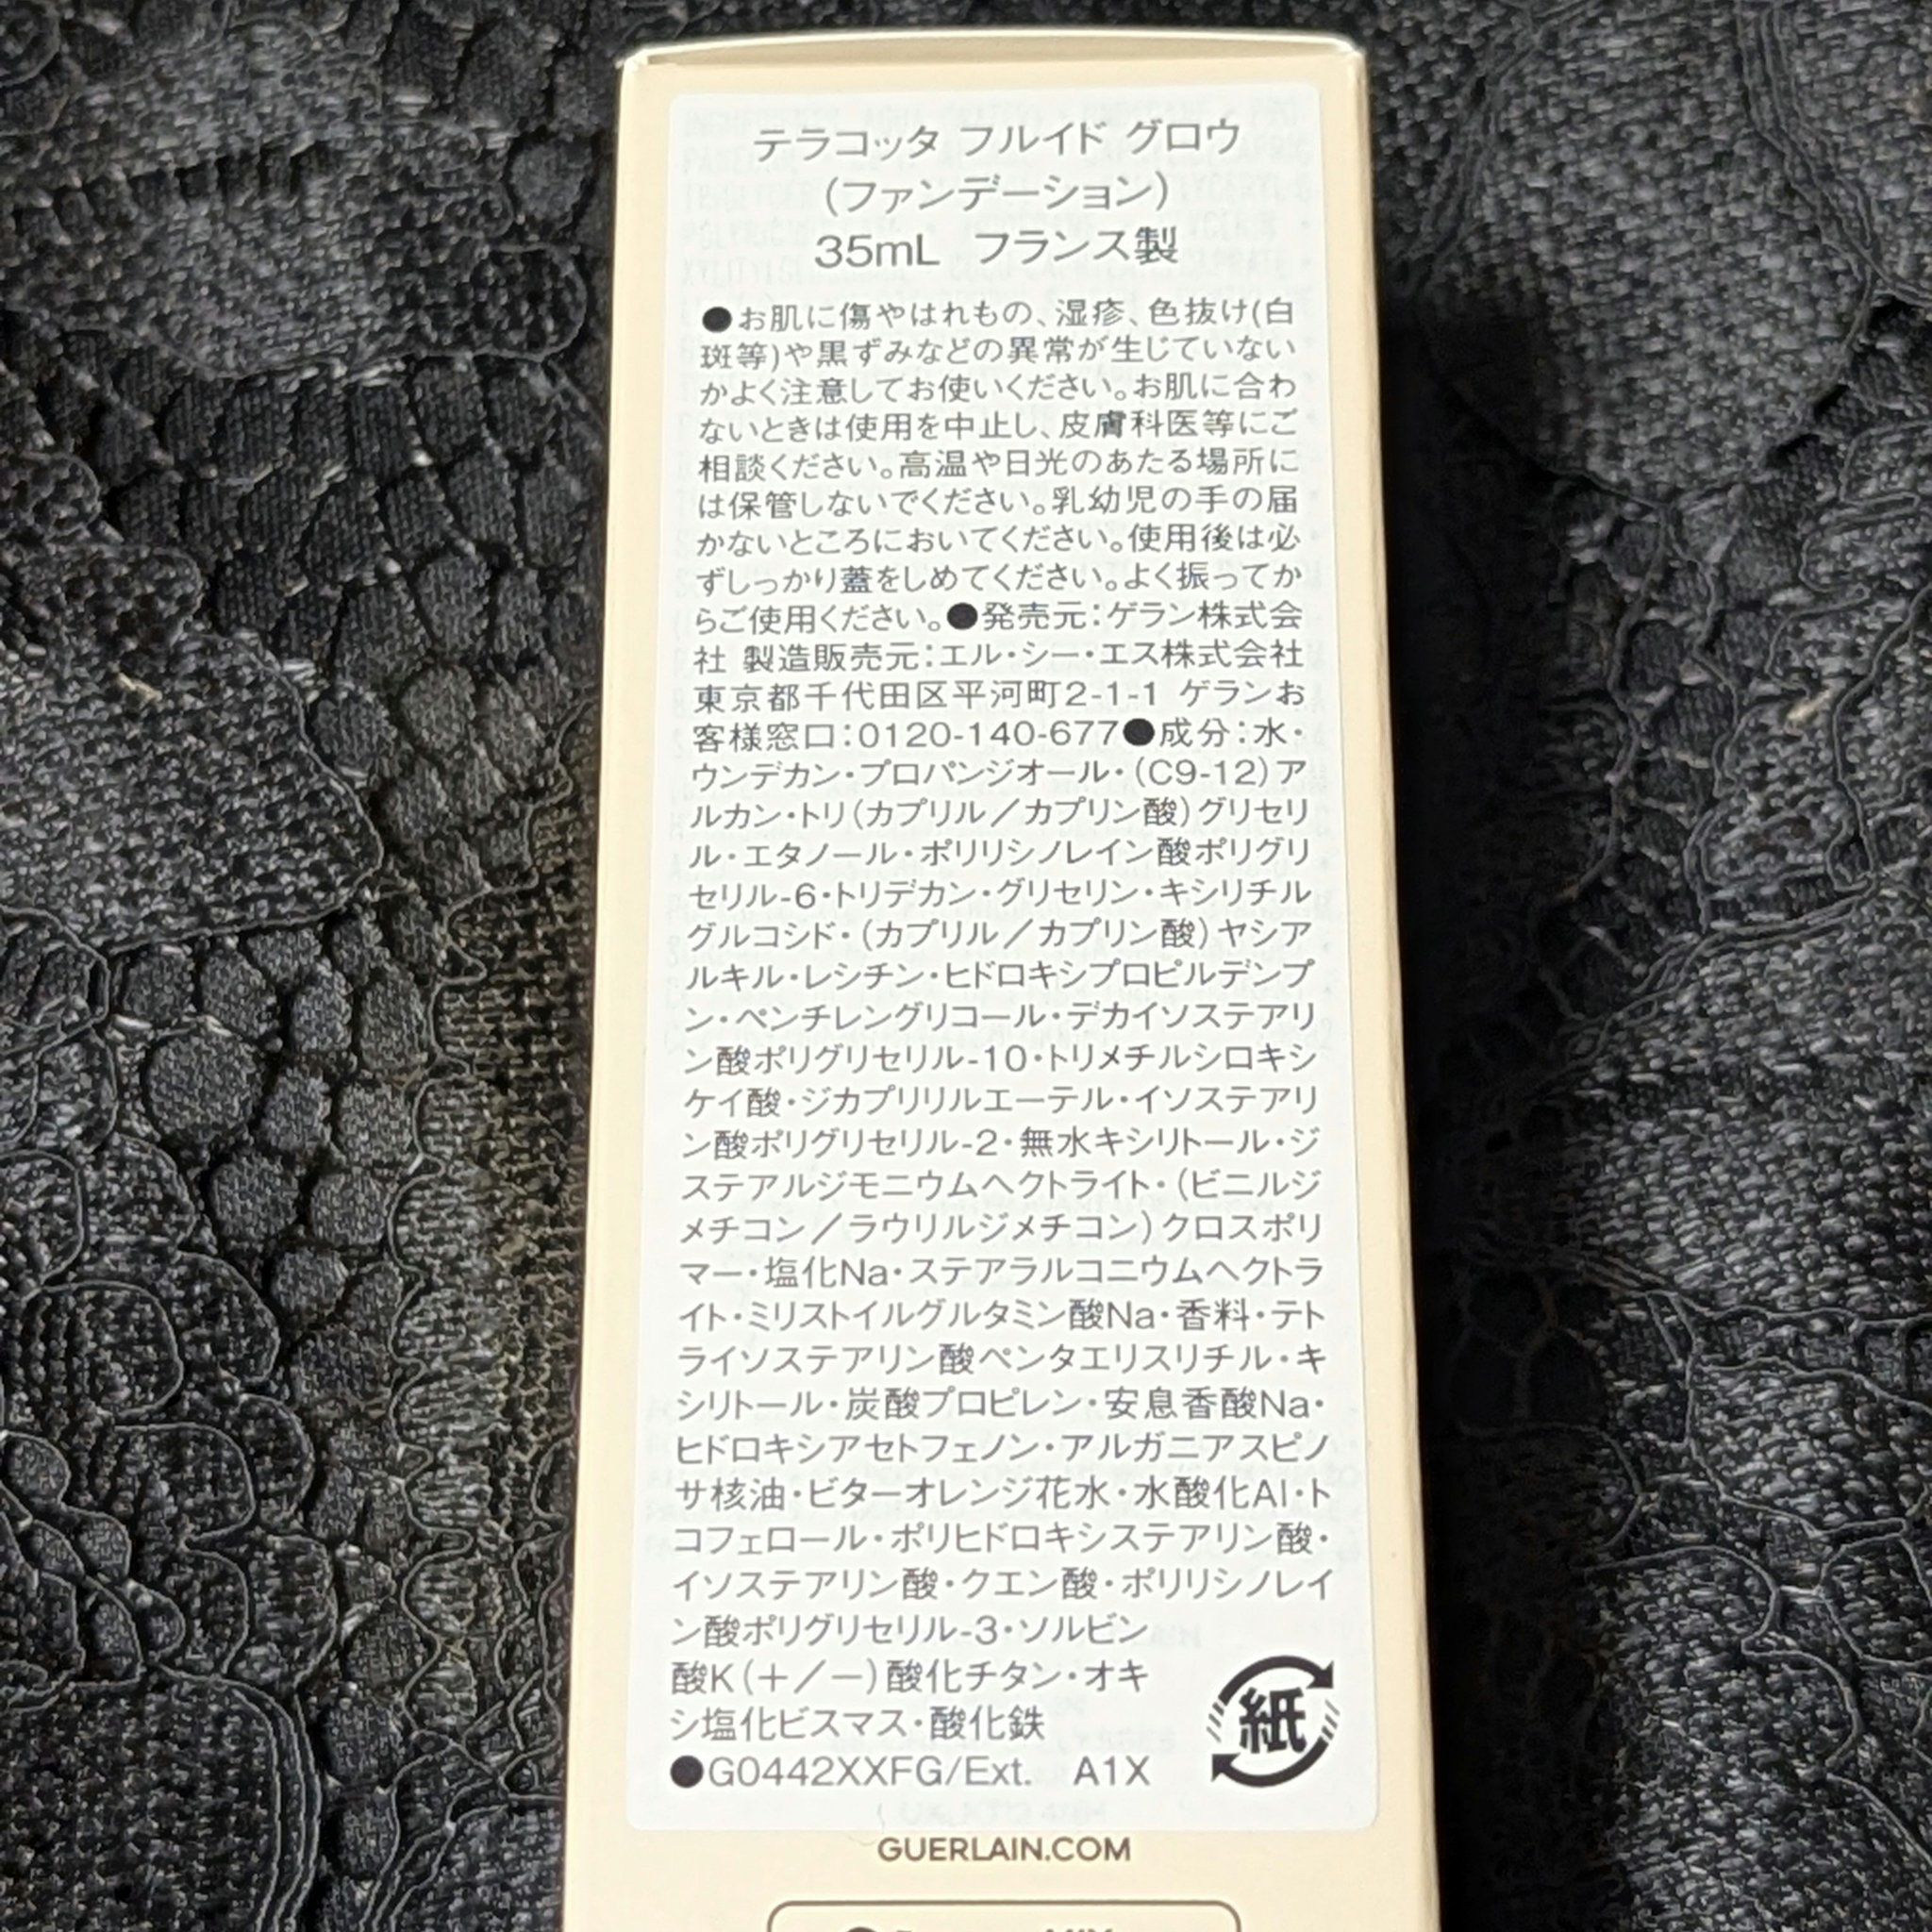 テラコッタ フルイド グロウ
(ファンデーション)
35mL フランス製
●お肌に傷やはれもの、湿疹、色抜け(白
斑等)や黒ずみなどの異常が生じていない
かよく注意してお使いください。お肌に合わ
ないときは使用を中止し、皮膚科医等にご
相談ください。高温や日光のあたる場所に
は保管しないでください。乳幼児の手の届
かないところにおいてください。使用後は必
ずしっかり蓋をしめてください。よく振ってか
らご使用ください。●発売元:ゲラン株式会
社 製造販売元:エル・シー・エス株式会社
東京都千代田区平河町2-1-1 ゲランお
客様窓口:0120-140-677●成分:水・
ウンデカン・プロパンジオール・(C9-12)ア
ルカン・トリ(カプリル/カプリン酸)グリセリ
ル・エタノール・ポリリシノレイン酸ポリグリ
セリル-6・トリデカン・グリセリン・キシリチル
グルコシド・(カプリル/カプリン酸)ヤシア
ルキル・レシチン・ヒドロキシプロピルデンプ
ン・ペンチレングリコール・デカイソステアリ
ン酸ポリグリセリル-10・トリメチルシロキシ
ケイ酸・ジカプリリルエーテル・イソステアリ
ン酸ポリグリセリル-2・無水キシリトール・ジ
ステアルジモニウムヘクトライト・(ビニルジ
メチコン/ラウリルジメチコン)クロスポリ
マー・塩化Na・ステアラルコニウムヘクトラ
イト・ミリストイルグルタミン酸Na・香料・テト
ライソステアリン酸ペンタエリスリチル・キ
シリトール・炭酸プロピレン・安息香酸Na・
ヒドロキシアセトフェノン・アルガニアスピノ
サ核油・ビターオレンジ花水・水酸化Al・ト
コフェロール・ポリヒドロキシステアリン酸・
イソステアリン酸・クエン酸・ポリリシノレイ
ン酸ポリグリセリル-3・ソルビン
酸K(+/-)酸化チタン・オキ
シ塩化ビスマス・酸化鉄
●G0442XXFG/Ext. A1X
紙
GUERLAIN.COM